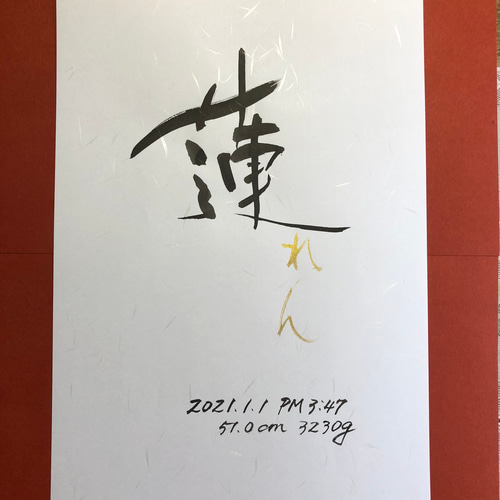 蓮
れん
2021.1.1 PM 3:47
51.0cm 3230g